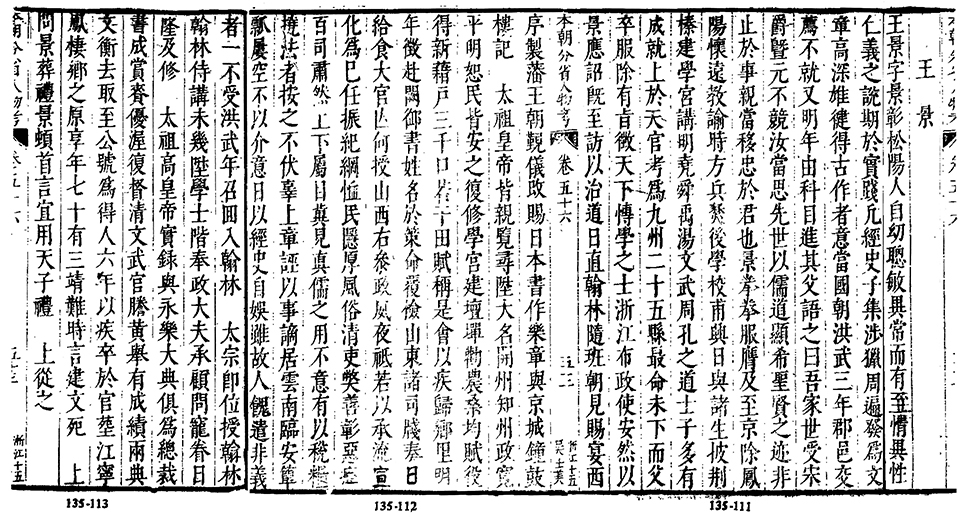 王景
王景字景彰松陽人自幼聰敏異常而有至情異性
仁義之說期於實踐凢經史子集涉獵周遍發爲文
章高深雄健得古作者意當國朝洪武三年郡邑交
薦不就又明年由科目進其父語之曰吾家世受宋
爵曁元不競汝當思先世以儒道顯希聖賢之迹非
止於事親當移忠於君也景拳拳服膺及至京除鳳
陽懷遠教諭時方兵燹後學校甫興日與諸生披荆
榛建學宮講明堯舜禹湯文武周孔之道士子多有
成就上於天官考爲九州二十五縣最命未下而父
卒服除有旨徵天下博學之士浙江布政使安然以
景應詔旣至訪以治道日直翰林隨班朝見賜宴西
本朝分省人物考
卷五十六
五二
序製藩王朝覲儀改賜日本書作樂章與京城鐘鼓
樓記 太祖皇帝皆親覽尋陞大名開州知州政寬
平明恕民皆安之復修學宮建壇墠物農桑均賦役
得新籍戶三千口若干田賦稱是會以疾歸鄉里明
年徵赴闕御書姓名於策命覆檢山東諸司牋奉日
給食大官 何授山西右參政夙夜祇若以承流宣
化爲巳任振紀綱恤民隱厚風俗清吏獘善彰惡癉
百司肅然上下屬目兾見真儒之用不意有以稅糧
違法者按之不伏辜上章誣以事謫居雲南臨安簞
瓢屢空不以介意日以經史自娛雖故人餽遺非義
者一不受洪武年召囬入翰林 太宗卽位授翰林
翰林侍講未幾陞學士階奉政大夫承顧問寵眷日
隆及修 太祖高皇帝實録與永樂大典俱爲總裁
書成賞賚優渥復督清文武官謄黃舉有成績兩典
文衡去取至公號爲得人六年以疾卒於官塟江寧
鳳棲鄉之原享年七十有三靖難時言建文死 上
問景葬禮景頓首言宜用天子禮 上從之
卷五十六
五三
浙江十五
135-113
135-112
135-111